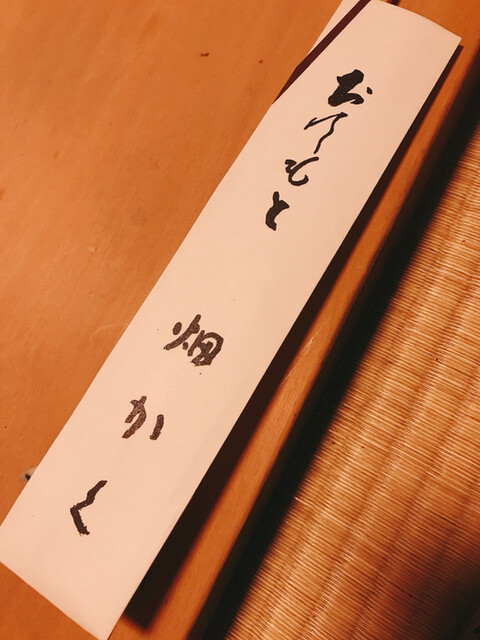 おてもと
畑かく